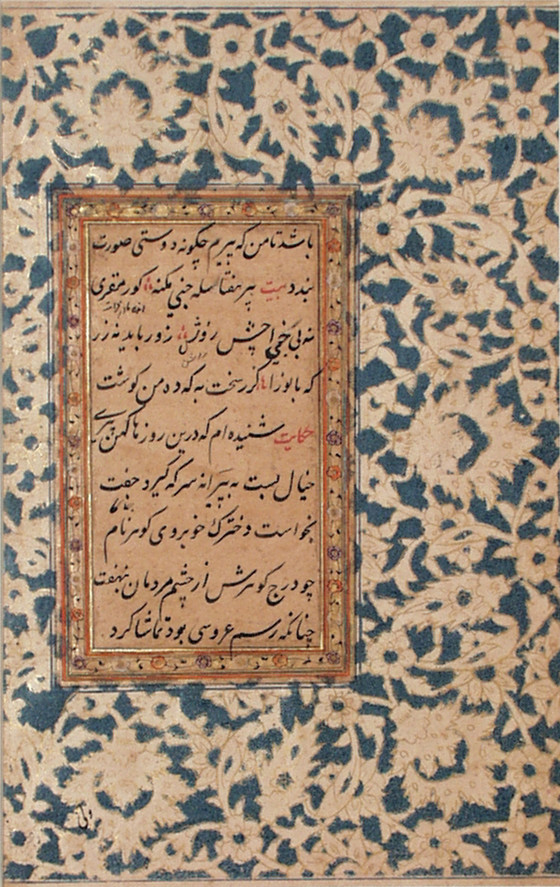 باشد تا من که پیرم چگونه دوستی صورت
بندد بیت پیر هفتا سله جنی مکنه کور مقری
نه بی خی چش روش زور باید نه زر
که بانو را گزر سخت به که ده من گوشت
حکایت شنیده‌ام که درین روزها کهن پیری
خیال بست به پیرانه سر که گیرد جفت
بخواست دخترکی خوبروی گوهر نام
چو درج گوهرش از چشم مردمان بنهفت
چنانکه رسم عروسی بود تماشا کرد